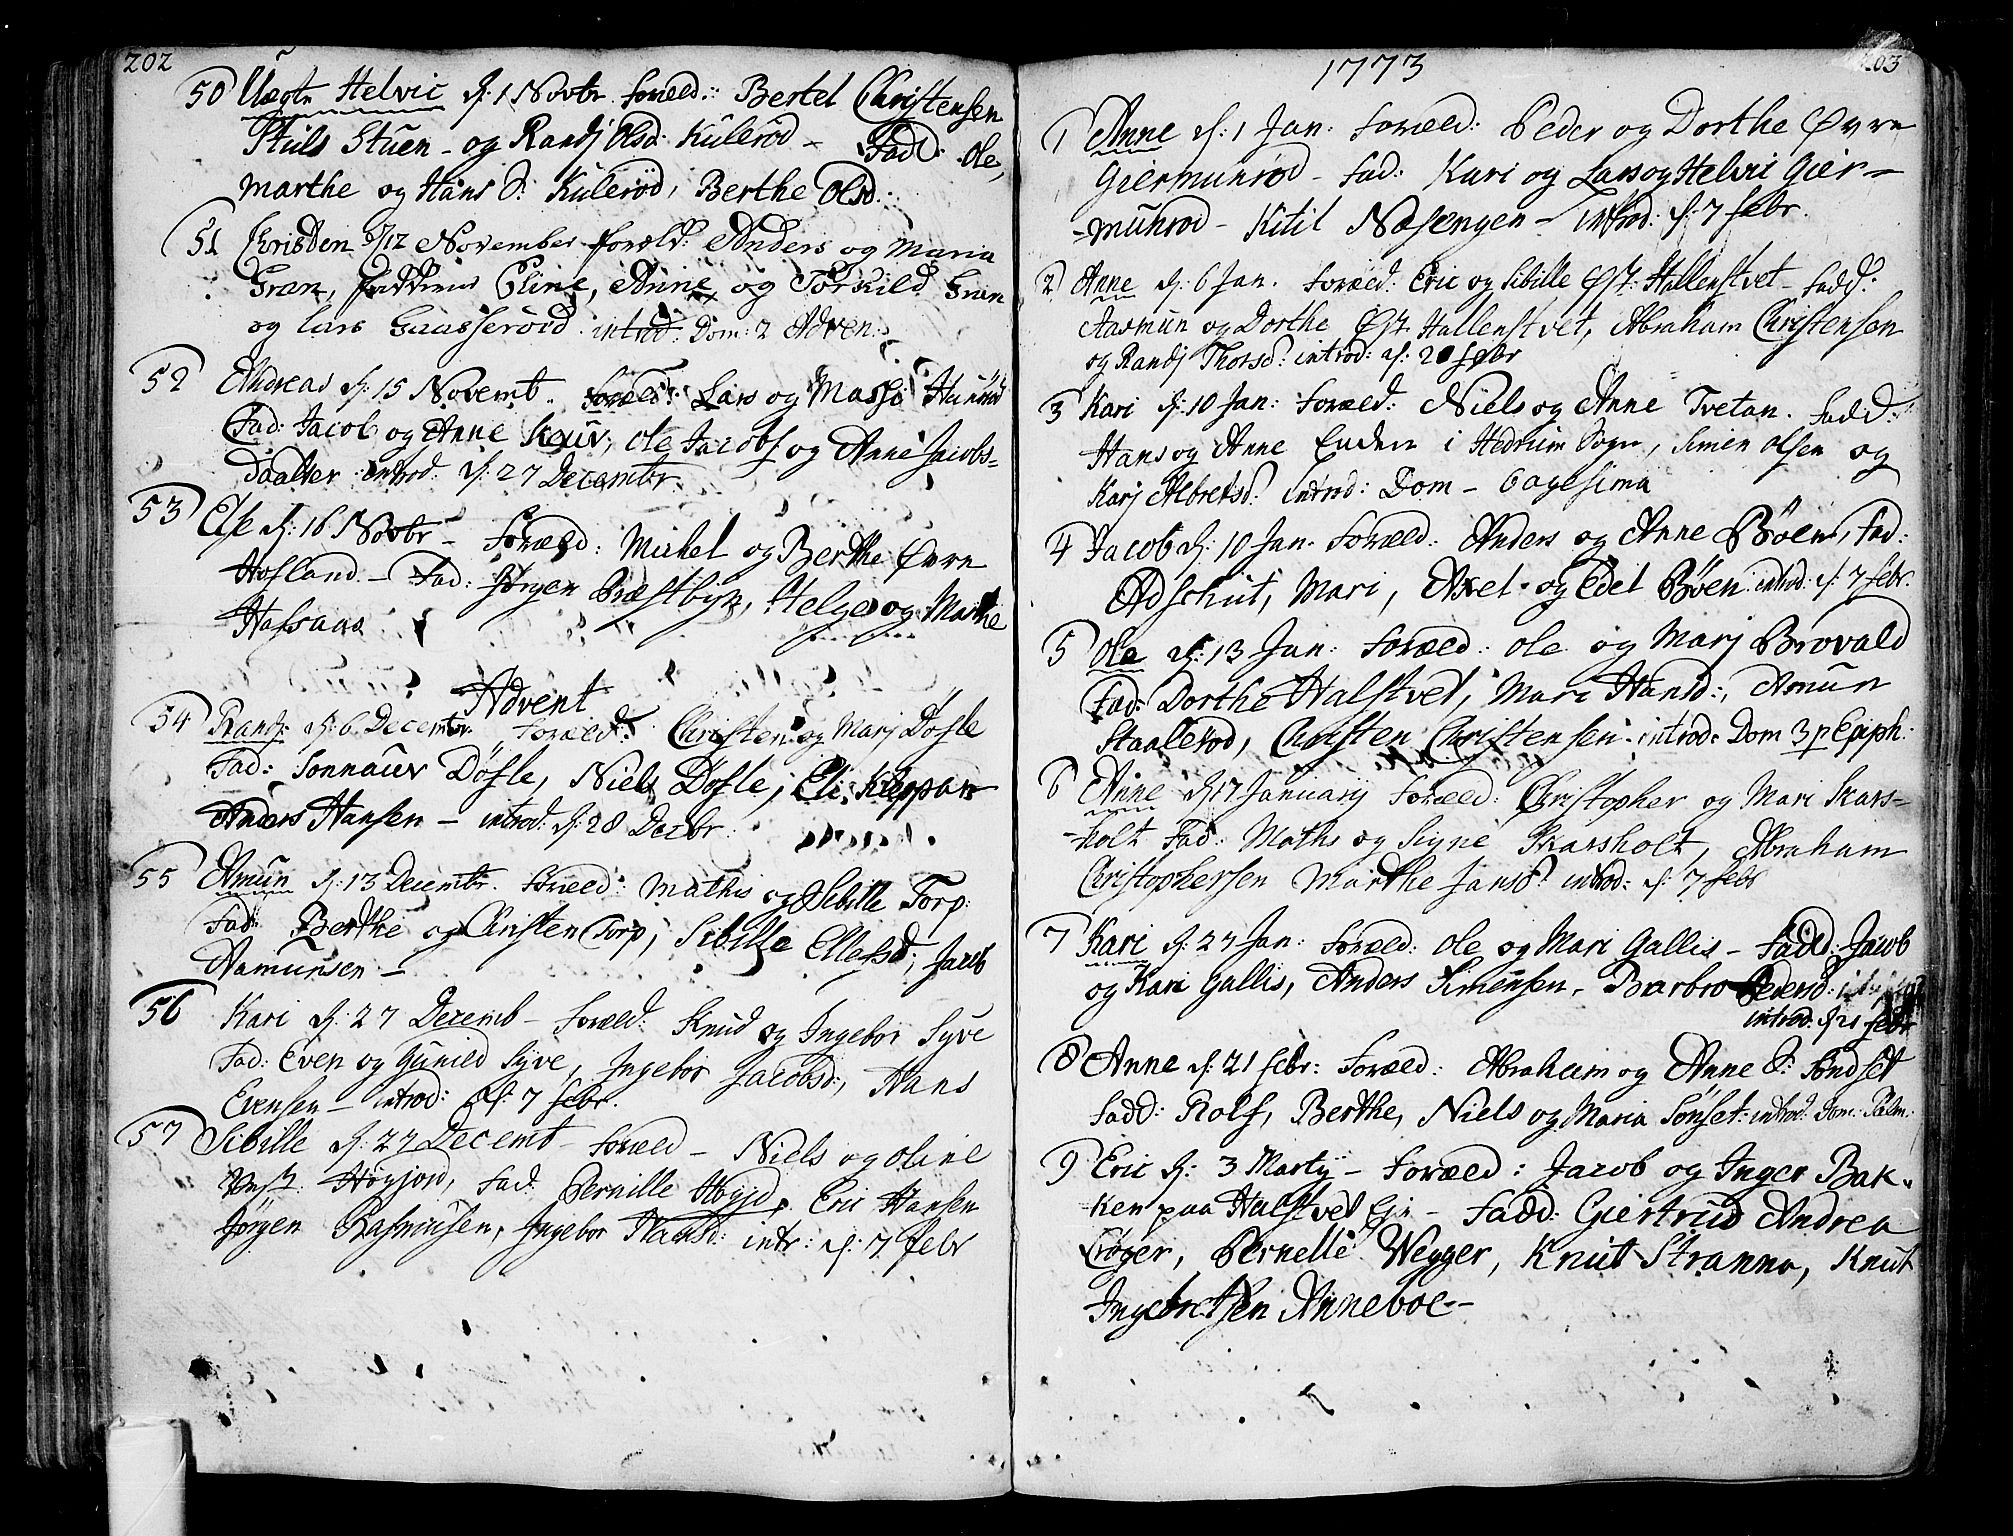 202
50 Uægte Helvic d: 1 Novbr Foræld: Bertel Christensen
Stuls Stuen - og Randj Olsd: Kulerød - Fadd: Ole,
Marthe og Hans S: Kulerød, Berthe Olsd:
51 Christen d/12 November foræld: Anders og Maria
Gran, Eline, Anne og Torkild Gran
og Lars Gaasserød. introd: Dom: 2 Adven:
52 Andreas d: 15 Novemt. Foræld: Lars og Massi Hunnød
Fad: Jacob og Anne Skauv, Ole Jacobs og Anne Jacobs-
Daatter introd. d: 27 Decembr.
53 Else d: 16 Novbr - Foræld: Mickel og Berthe Øvre
Hofland - Fad: Jørgen Præstbye, Helge og Marthe
Hafsaas
Advent
54 Randj d: 6 Decembr. Foræld: Christen og Marj Døfle
Fad: Sonnauv Døfle, Niels Døfle, Eli Kleppan
Anders Hansen - introd: d: 28 Decbr.
55 Amun d: 13 Decembr. Foræld: Mathis og Sibille Torp:
Fad: Berthe og Christen Torp, Sibille Ellefsd:, Jacob
Aamunsen -
56 Kari d: 27 Decemb - Foræld: Knud og Ingebor Syve
Fad: Even og Gunild Syve, Ingebor Jacobsd:, Hans
Evensen - introd: d: 7 febr.
57 Sibille d: 27 Decemt - Foræld - Niels og Oline
Vest: Høyjord, Fad: Pernille Høyjd, Eric Hansen
Jørgen Rasmusen, Ingebor Hansd: intr: d: 7 febr
1773
203
1 Anne d: 1 Jan: Foræld: Peder og Dorthe Øvre
Giermunrød - Fad: Kari og Lars og Helvic Gier-
-munrød - Kitil Næsengen - introd: d: 7 febr.
2 Anne d: 6 Jan. Foræld: Eric og Sibille Øst: Hallenstvet - Fadd:
Aasmun og Dorthe Øst Hallenstvet, Abraham Christensen
og Randj Thorsd: introd: d: 20 febr
3 Kari d: 10 Jan: Foræld: Niels og Anne Tvetan. Fadd:
Hans og Anne i Hedrum Sogn, Simen Olsen og
Karj Albretsd: introd: Dom - 6agesima
4 Jacob d: 10 Jan. Foræld: Anders og Anne Bøen, Fad:
Ad Schut, Mari, Axel og Edel Bøen introd: d: 7 febr.
5 Ole d: 13 Jan: Foræld: Ole og Marj Brovald
Fad: Dorthe Halstvet, Mari Hansd:, Amun
Staalerød, Christen Christensen - introd: Dom 3 p Epiph:
6 Anne d: 17 Januarij Foræld: Christopher og Mari Skars-
-holt Fad: Mathis og Signe Skarsholt, Abraham
Christophersen Marthe Jansd: introd: d: 7 febr
7 Kari d: 27 Jan: Foræld: Ole og Mari Gallis - Fadd: Jacob
og Kari Gallis, Anders Simensen, Barbro Pedersd:
introd: d: 21 febr
8 Anne d: 21 febr: Foræld: Abraham og Anne S: Søndset
Fadd: Rolf, Berthe, Niels og Maria Sønset - introd: Dom: Palm:
9 Eric d: 3 Martij - Foræld: Jacob og Inger Bak-
ken paa Halstvet Eje - Fadd: Giertrud Andrea
Crøger, Pernelle Wegger, Knut Stranna, Knut
Ingebretsen Anneboe -